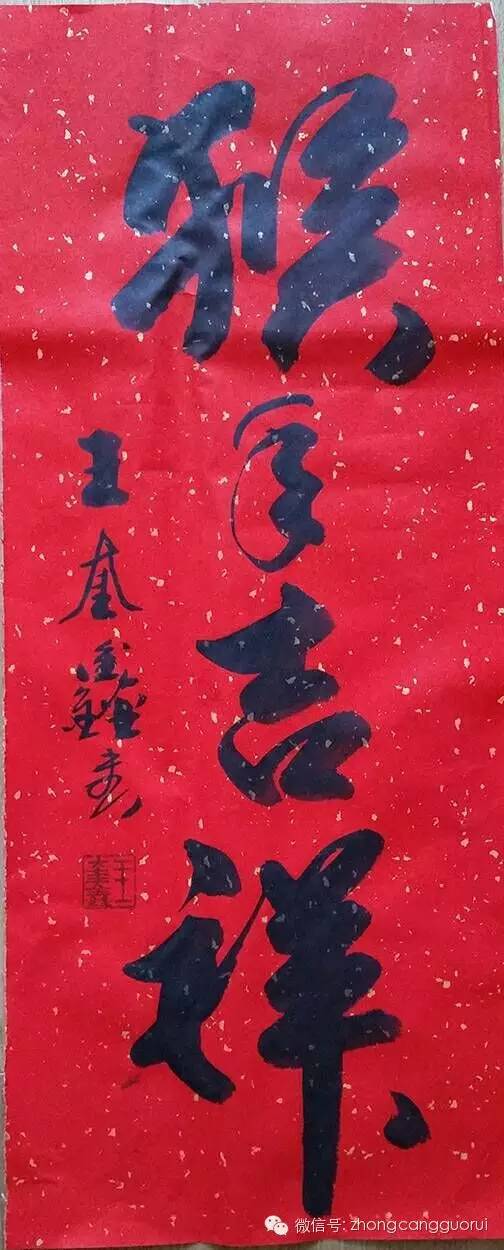 猴年吉祥
王奎鑫书
王奎鑫
微信号: zhongcangguorui